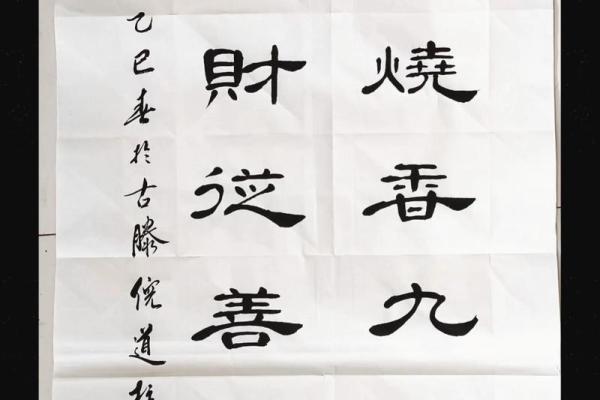 燒香九
財從善
乙巳春於古滕倪道